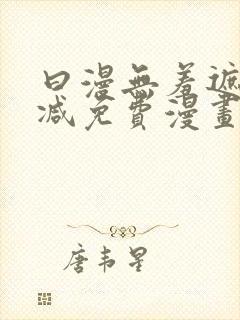 日漫無羞遮
减免費漫畫
唐韦星